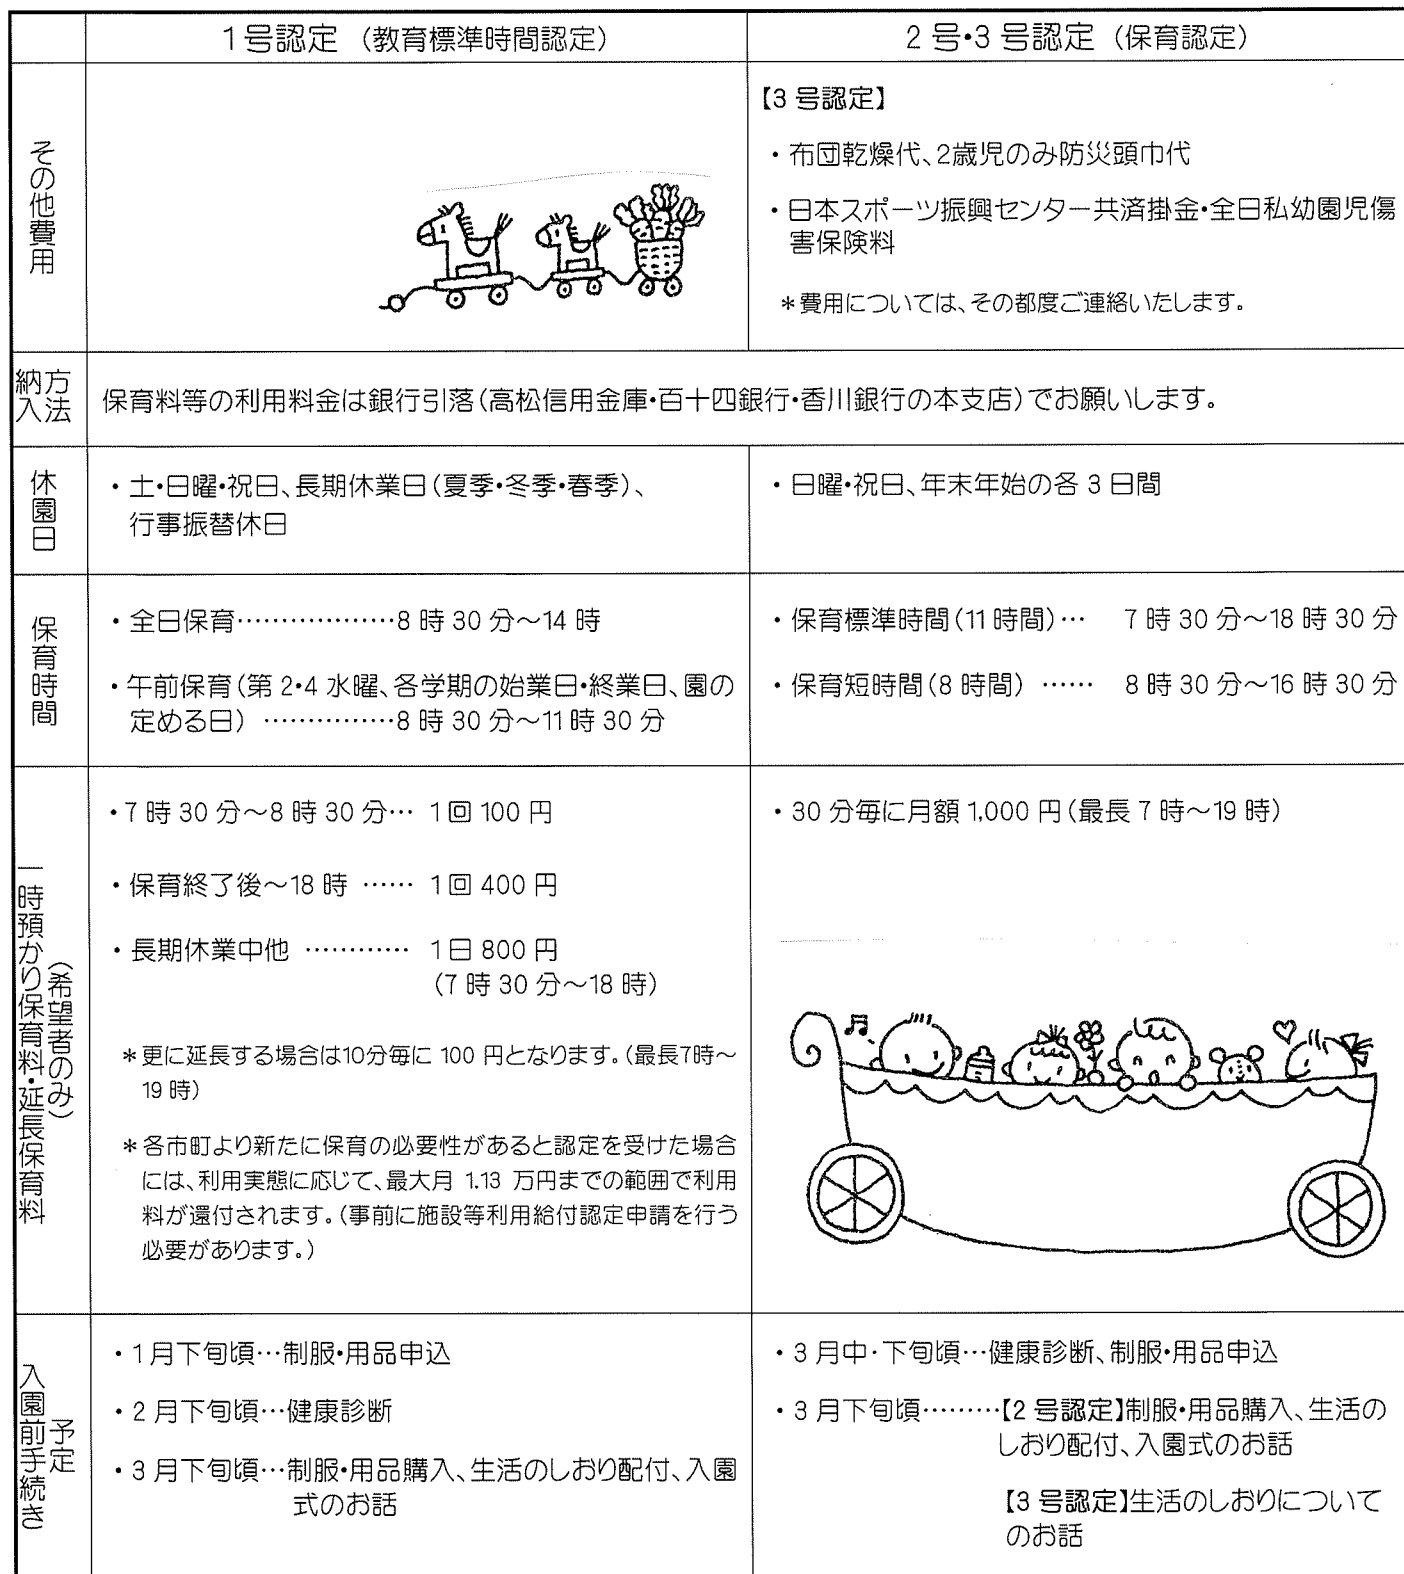 1号認定 (教育標準時間認定)
2号・3号認定 (保育認定)
その他費用
【3号認定】
・布団乾燥代、2歳児のみ防災頭巾代
・日本スポーツ振興センター共済掛金・全日私幼園児傷
害保険料
*費用については、その都度ご連絡いたします。
納入方法
保育料等の利用料金は銀行引落(高松信用金庫・百十四銀行・香川銀行の本支店)でお願いします。
休園日
・土・日曜・祝日、長期休業日(夏季・冬季・春季)、
行事振替休日
・日曜・祝日、年末年始の各3日間
保育時間
・全日保育………………8時30分~14時
・午前保育(第2・4水曜、各学期の始業日・終業日、園の
定める日) ……………8時30分~11時30分
・保育標準時間(11時間)… 7時30分~18時30分
・保育短時間(8時間) …… 8時30分~16時30分
一時預かり保育料・延長保育料
(希望者のみ)
・7時30分~8時30分… 1回100円
・保育終了後~18時 …… 1回400円
・長期休業中他 ………… 1日800円
(7時30分~18時)
*更に延長する場合は10分毎に100円となります。(最長7時~
19時)
*各市町より新たに保育の必要性があると認定を受けた場合
には、利用実態に応じて、最大月 1.13 万円までの範囲で利用
料が還付されます。(事前に施設等利用給付認定申請を行う
必要があります。)
・30分毎に月額1,000円(最長7時~19時)
入園前手続き
予定
・1月下旬頃…制服・用品申込
・2月下旬頃…健康診断
・3月下旬頃…制服・用品購入、生活のしおり配付、入園
式のお話
・3月中・下旬頃…健康診断、制服・用品申込
・3月下旬頃………【2号認定】制服・用品購入、生活の
しおり配付、入園式のお話
【3号認定】生活のしおりについて
のお話